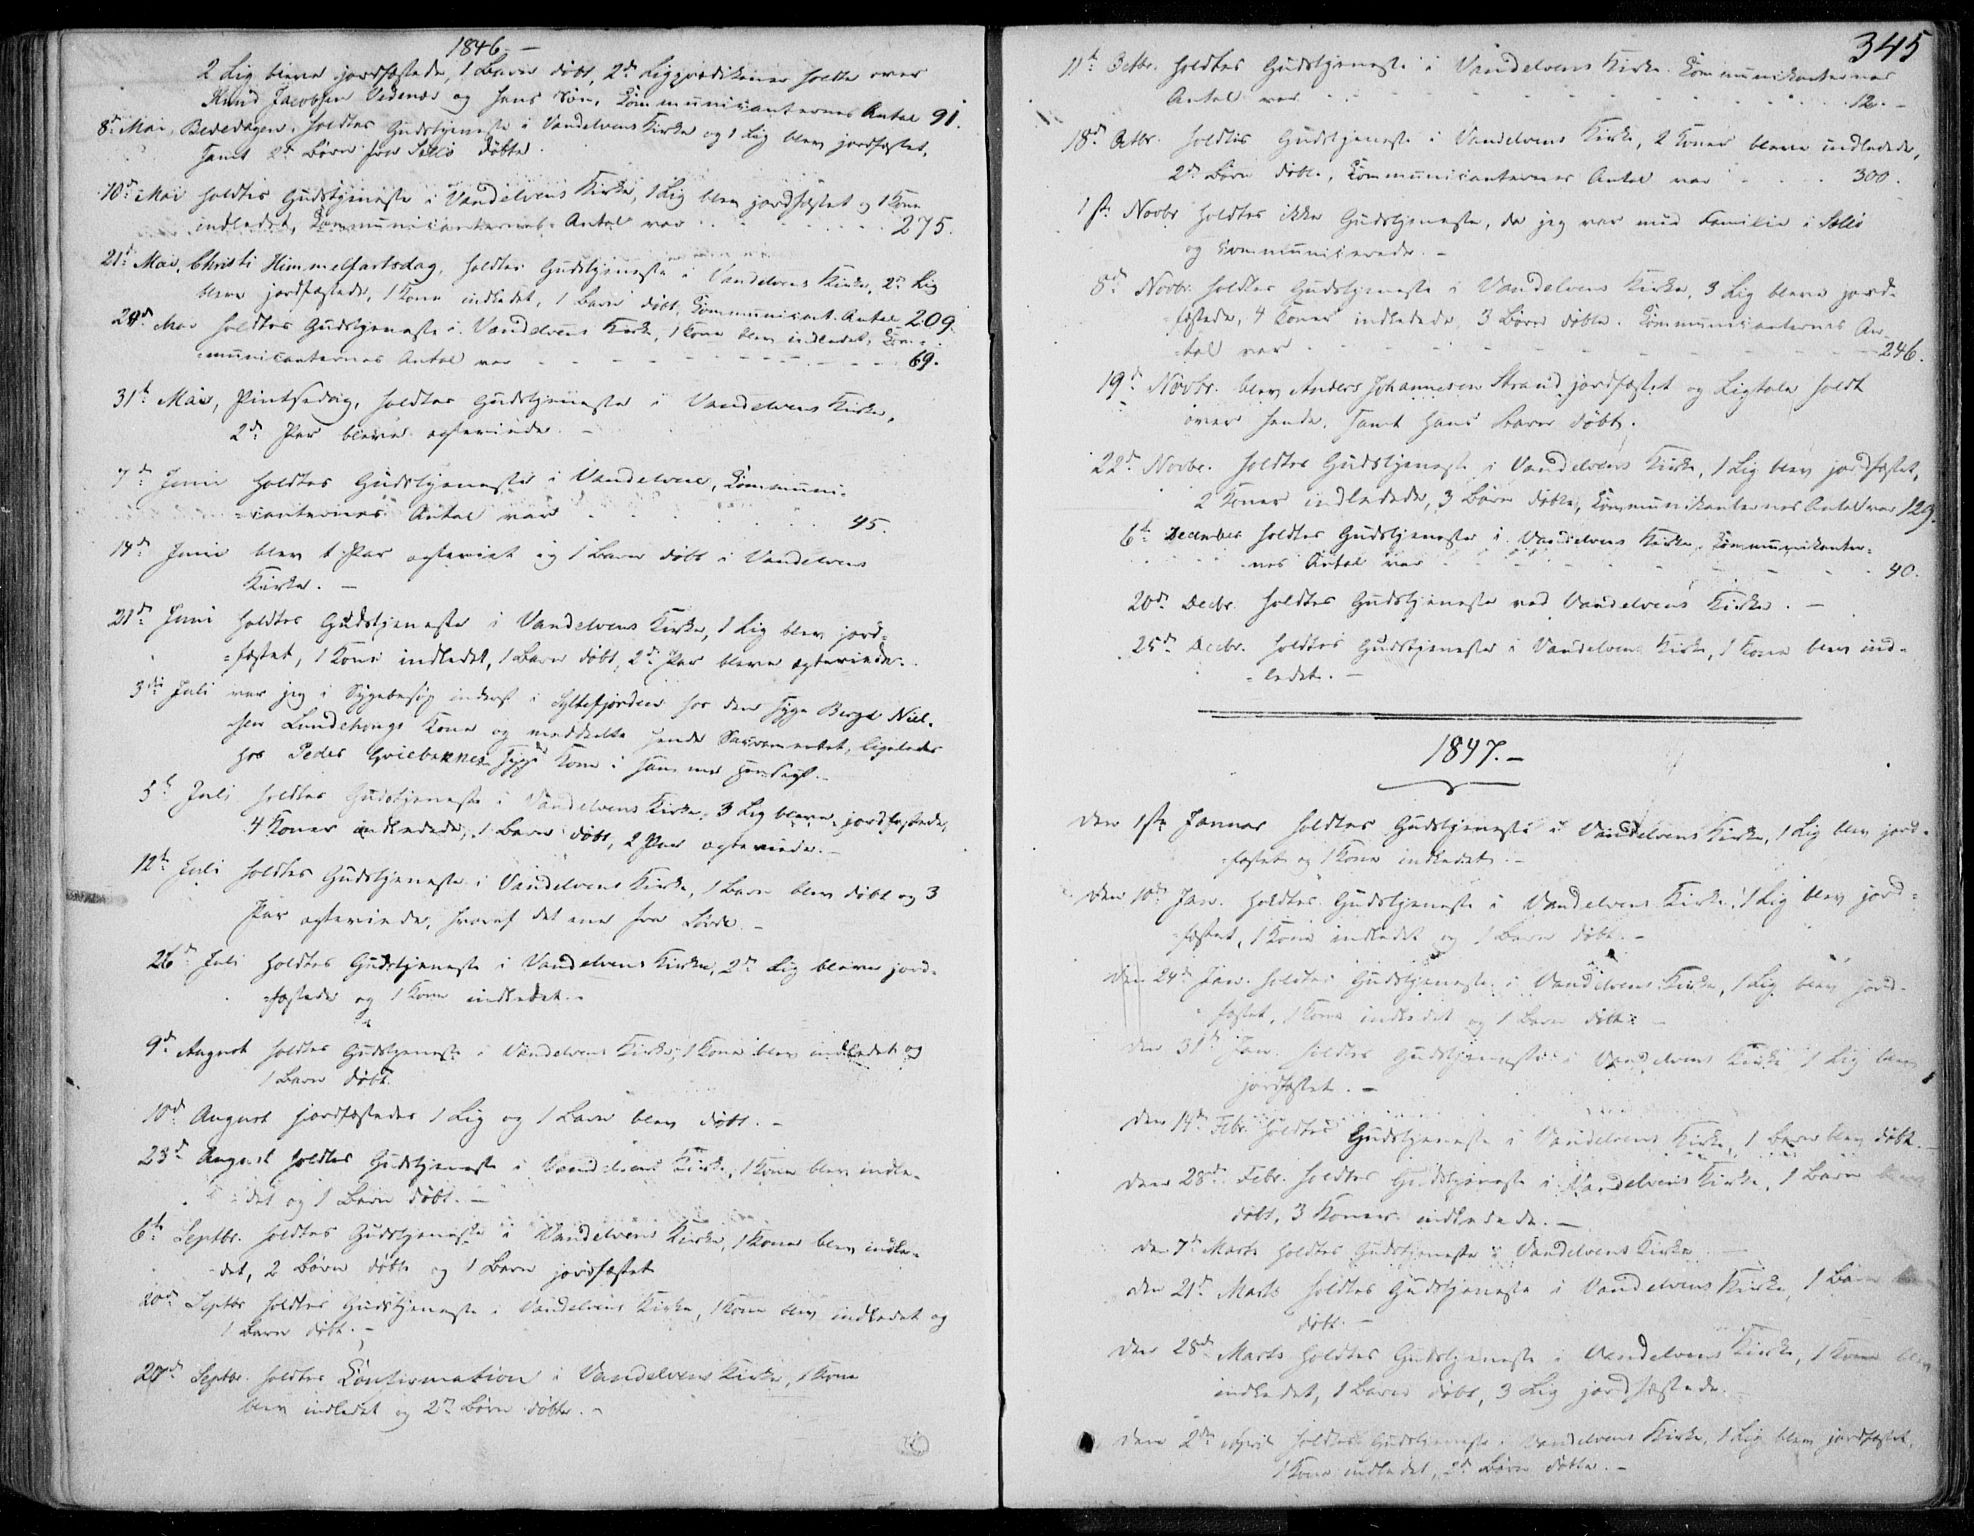 1846.—
2 Lig bleve jordfæstede, 1 Barn døbt, 2de Ligprædikener holdte over
Knud Jacobsen Vedenæs og hans Søn, Communicanternes Antal 91.
8de Mai, Bededagen, holdtes Gudstjeneste i Vandelvens Kirke og 1 Lig blev jordfæstet,
samt 2de Børn døbte.
10de Mai holdtes Gudstjeneste i Vandelvens Kirke, 1 Lig blev jordfæstet og 1 Kone
indledet, Communicanternes Antal var . . . 275.
21de Mai, Christi Himmelfartsdag, holdtes Gudstjeneste i Vandelvens Kirke, 2de Lig
bleve jordfæstede, 1 Kone indledet, 1 Barn døbt, Communicant. Antal 209.
24de Mai holdtes Gudstjeneste i Vandelvens Kirke, 1 Kone blev indledet, Com=
=municanternes Antal var - - - 69.
31te Mai, Pintsedag, holdtes Gudstjeneste i Vandelvens Kirke,
2de Par bleve egteviede. —
7de Juni holdtes Gudstjeneste i Vandelven, Communi=
=canternes Antal var . . . 45.
14de Juni blev 1 Par egteviet og 1 Barn døbt i Vandelvens
Kirke. —
21de Juni holdtes Gudstjeneste i Vandelvens Kirke, 1 Lig blev jord=
=fæstet, 1 Kone indledet, 1 Barn døbt, 2de Par bleve egteviede.
3die Juli var jeg i Sygebesøg inderst i Syltefjorden hos den syge Berge Niel=
=sen Lundehougs Kone og meddeelte hende Sacramentet, ligeledes
hos Peder Kone i samme Hensigt.—
5te Juli holdtes Gudstjeneste i Vandelvens Kirke, 3 Lig bleve jordfæstede,
4 Koner indledede, 1 Barn døbt, 2 Par egteviede.—
12te Juli holdtes Gudstjeneste i Vandelvens Kirke, 1 Barn blev døbt og 3
Par egteviede, hvoraf det ene fra —
26de Juli holdtes Gudstjeneste i Vandelvens Kirke, 2de Lig bleve jord=
=fæstede og 1 Kone indledet.—
9de August holdtes Gudstjeneste i Vandelvens Kirke, 1 Kone blev indledet og
1 Barn døbt.
10de August jordfæstedes 1 Lig og 1 Barn blev døbt. —
23de August holdtes Gudstjeneste i Vandelvens Kirke, 1 Kone blev indle=
=det og 1 Barn døbt. —
6te Septbr. holdtes Gudstjeneste i Vandelvens Kirke, 1 Kone blev indle=
=det, 2 Børn døbte og 1 Barn jordfæstet
20de Septbr holdtes Gudstjeneste i Vandelvens Kirke, 1 Kone blev indledet og
1 Barn døbt.—
27de Septbr. holdtes Confirmation i Vandelvens Kirke, 1 Kone
blev indledet og 2de Børn døbte.—
345
11te Octbr. holdtes Gudstjeneste i Vandelvens Kirke. Communikanternes
Antal var . . . 12.—
18de Octbr. holdtes Gudstjeneste i Vandelvens Kirke, 2 Koner bleve indledede,
2de Børn døbte, Communicanternes Antal var - - - 300.
1ste Novbr holdtes ikke Gudstjeneste, da jeg var med Familie i
og communicerede. —
8de Novbr. holdtes Gudstjeneste i Vandelvens Kirke, 3 Lig bleve jord=
=fæstede, 4 Koner indledede, 3 Børn døbte. Communicanternes An=
=tal var - - - 246.
19de Novbr. blev Anders Johannesen Strand jordfæstet og Ligtale holdt
over hende, samt hans Barn døbt.
22de Novbr. holdtes Gudstjeneste i Vandelvens Kirke, 1 Lig blev jordfæstet,
2 Koner indledede, 3 Børn døbte, Communikanternes Antal var 129.
6te December holdtes Gudstjeneste i Vandelvens Kirke, Communikanter=
nes Antal var - - - 40.
20de Decbr. holdtes Gudstjeneste ved Vandelvens Kirke. —
25de Decbr. holdtes Gudstjeneste i Vandelvens Kirke, 1 Kone blev ind=
=ledet. —
1847.—
Den 1ste Januar holdtes Gudstjeneste i Vandelvens Kirke, 1 Lig blev jord=
=fæstet og 1 Kone indledet.—
Den 10de Jan. holdtes Gudstjeneste i Vandelvens Kirke, 1 Lig blev jord=
=fæstet, 1 Kone indledet og 1 Barn døbt.—
Den 24de Jan. holdtes Gudstjeneste i Vandelvens Kirke, 1 Lig blev jord=
fæstet, 1 Kone indledet og 1 Barn døbt. —
Den 31te Jan. holdtes Gudstjeneste i Vandelvens Kirke 1 Lig blev
jordfæstet. —
Den 14de Febr. holdtes Gudstjeneste i Vandelvens Kirke, 1 Barn blev døbt.
Den 28de Febr. holdtes Gudstjeneste i Vandelvens Kirke, 1 Barn blev
døbt, 3 Koner indledede. —
Den 7de Marts holdtes Gudstjeneste i Vandelvens Kirke
Den 21de Marts holdtes Gudstjeneste i Vandelvens Kirke, 1 Barn blev
døbt. —
Den 28de Marts holdtes Gudstjeneste i Vandelvens Kirke, 1 Kone blev
indledet, 1 Barn døbt, 3 Lig jordfæstede.
Den 2den April holdtes Gudstjeneste i Vandelvens Kirke, 1 Lig blev jordfæstet,
1 Kone indledet, 2de Børn døbte. —